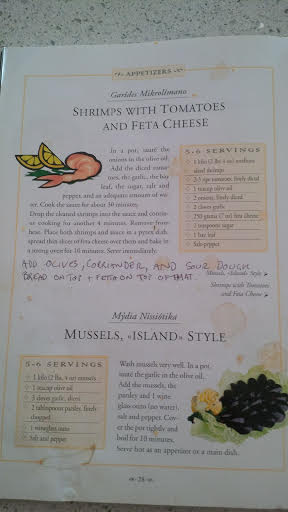 APPETIZERS
Garídes Mikrolímano
SHRIMPS WITH TOMATOES
AND FETA CHEESE
In a pot, sauté the
onions in the olive oil.
Add the diced toma-
toes, the garlic, the bay
leaf, the sugar, salt and
pepper, and an adequate amount of wa-
ter. Cook the sauce for about 30 minutes.
Drop the cleaned shrimps into the sauce and contin-
ue cooking for another 4 minutes. Remove from
heat. Place both shrimps and sauce in a pyrex dish
spread thin slices of feta cheese over them and bake in
a strong oven for 10 minutes. Serve immediately.
5-6 SERVINGS
1 kilo (2 lbs 4 oz) medium-
sized shrimps
2-3 ripe tomatoes, finely diced
1 teacup olive oil
2 onions, finely diced
2 cloves garlic
250 grams (7 oz) feta cheese
2 teaspoons sugar
1 bay leaf
Salt-pepper
ADD OLIVES, CORRIANDER, AND SOUR DOUGH
BREAD ON TOP + FETA ON TOP OF THAT.
Mussels, «Island» Style
Shrimps with Tomatoes
and Feta Cheese
Mýdia Nissiótika
MUSSELS, «ISLAND» STYLE
5-6 SERVINGS
1 kilo (2 lbs, 4 oz) mussels
1 teacup olive oil
3 cloves garlic, sliced
2 tablespoons parsley, finely
chopped
1 wineglass ouzo
Salt and pepper
Wash mussels very well. In a pot,
sauté the garlic in the olive oil.
Add the mussels, the
parsley and 1 wine
glass ouzo (no water),
salt and pepper. Cov-
er the pot tightly and
boil for 10 minutes.
Serve hot as an appetizer or a main dish.
28